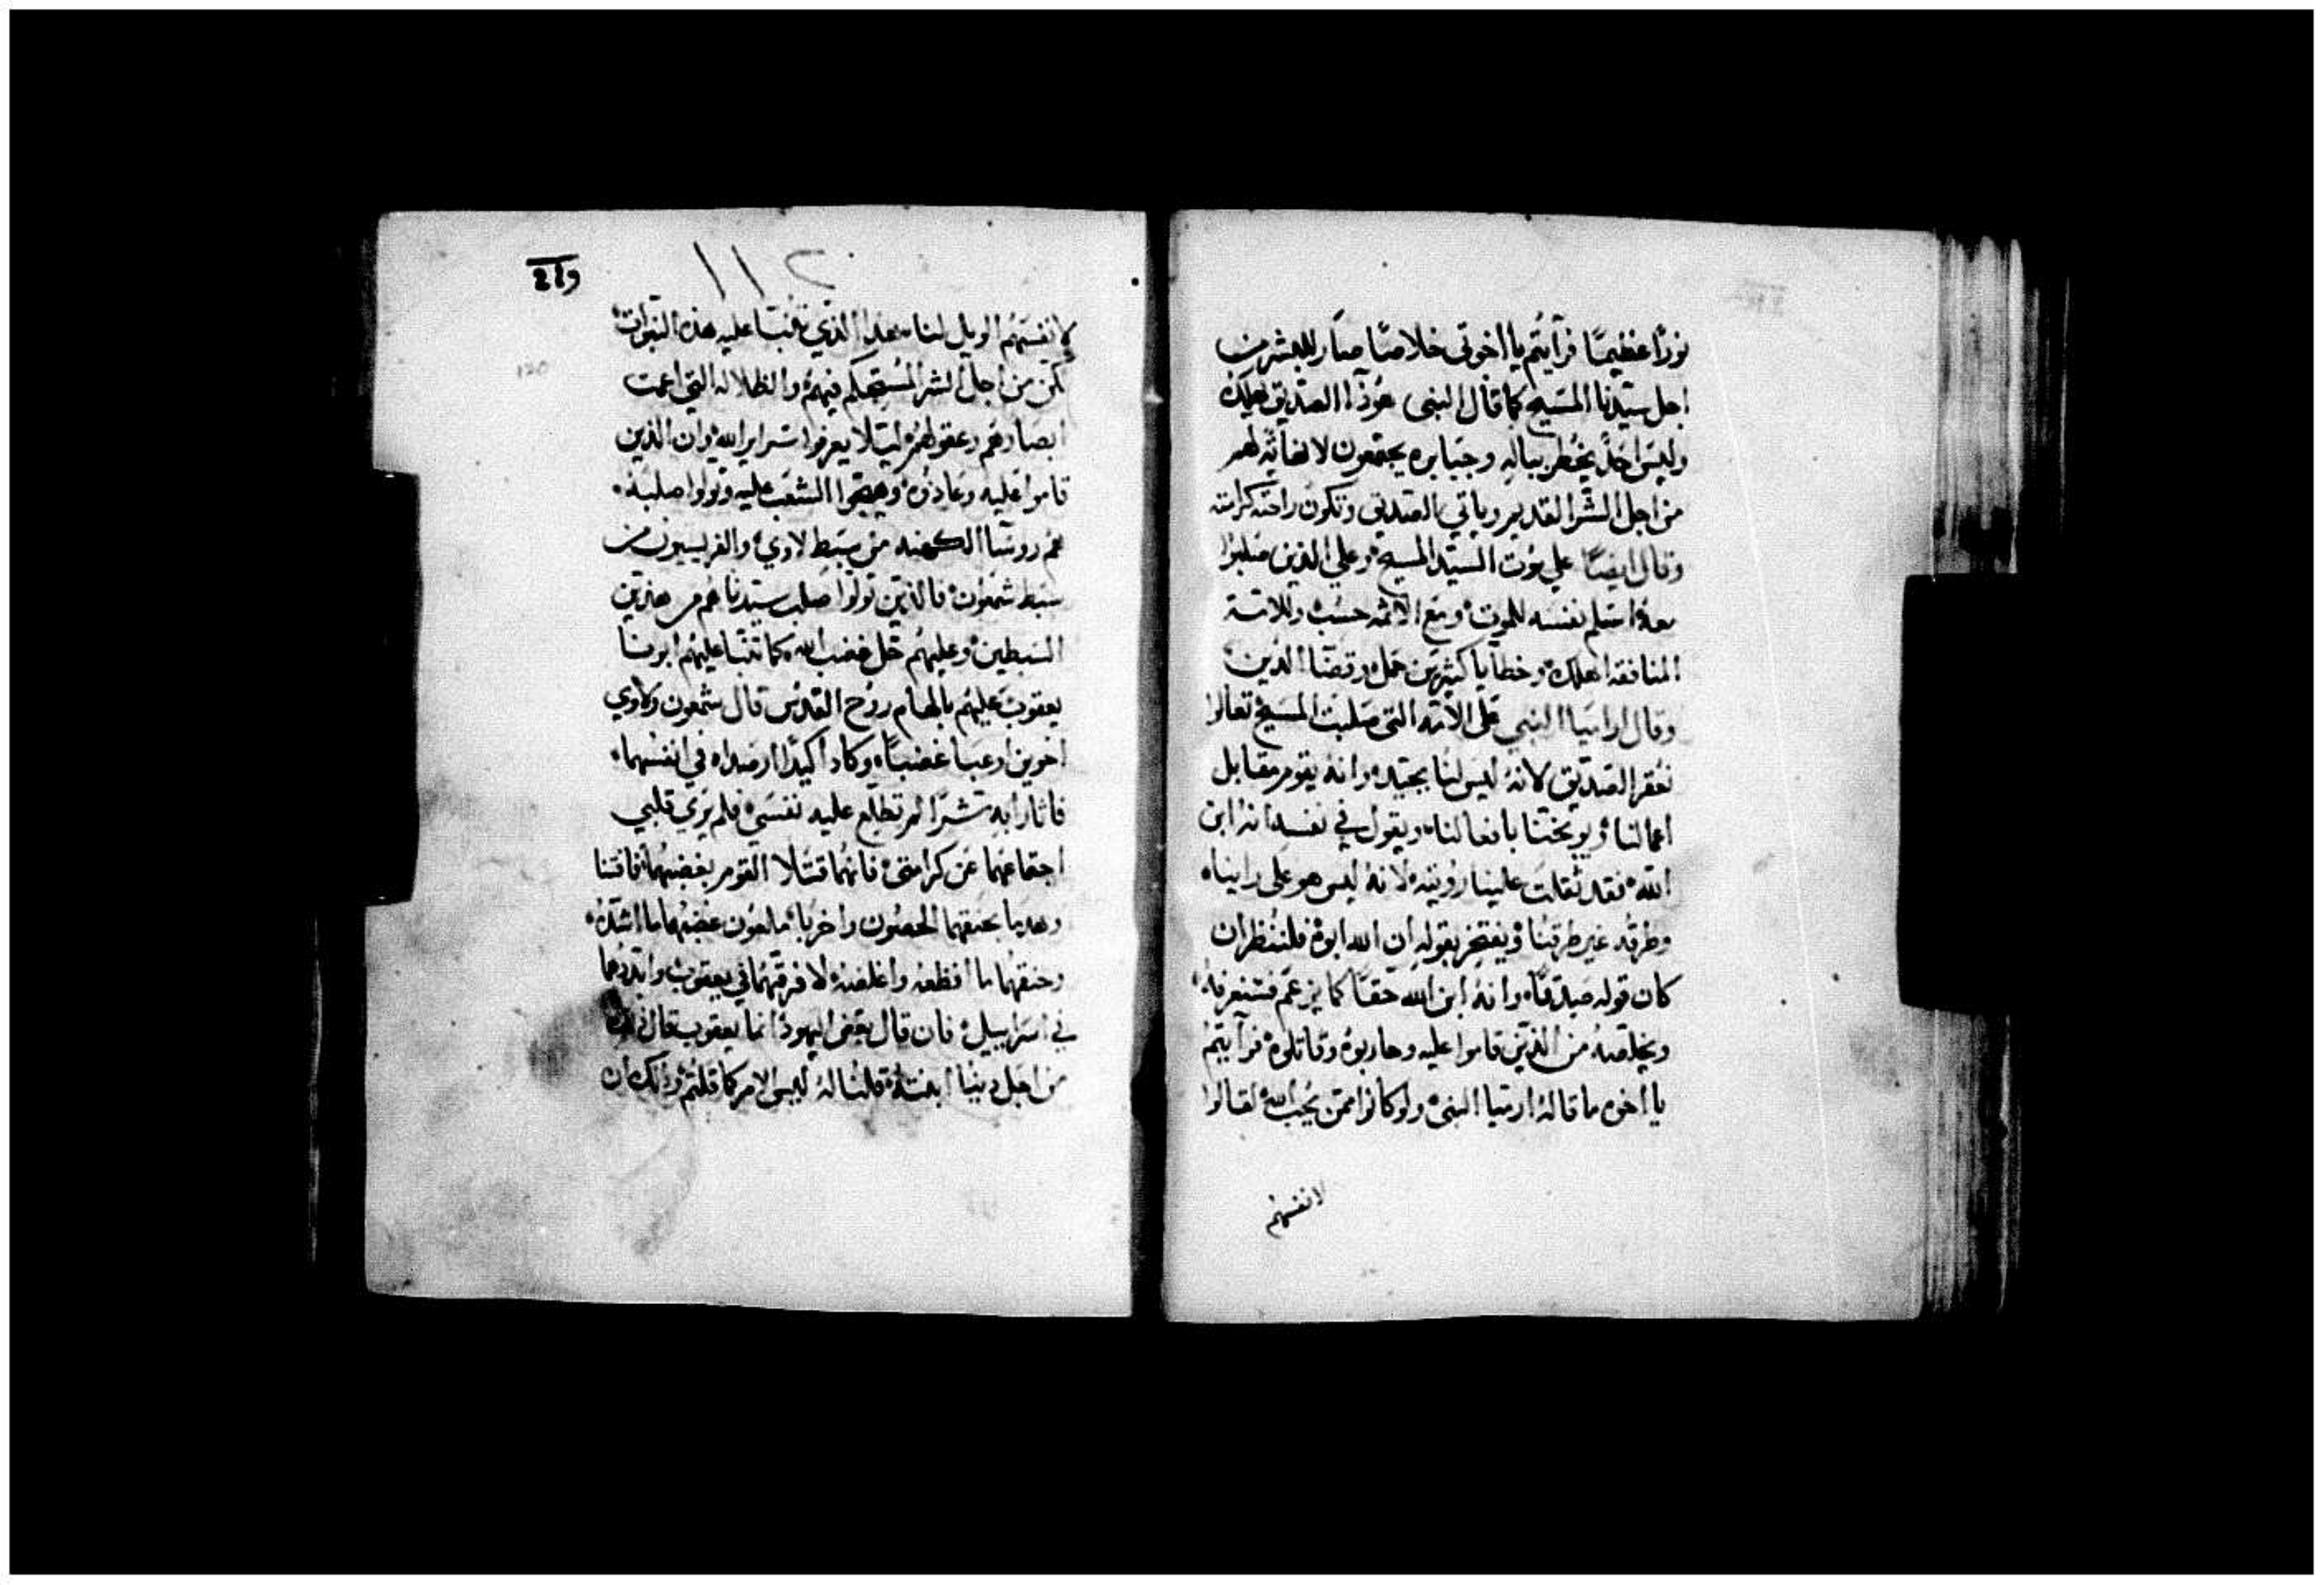 نورًا عظيمًا فرآيتم يا اخوتي خلاصًا صار للبشر من
اجل سيدنا المسيح كما قال النبي هوذا الصديق هلك
وليس احد يخطر بباله وجبابره يجتمعون لهم
من اجل الشر القديم وياتي بالصديق وتكون راحته كرامته
وقال ايضًا علي موت السيد المسيح وعلي الذين صلبوا
معه اسلم نفسه للموت ومع الاثمه حسب وللامة
المنافقه اهلك وخطايا كثيرين حمل
وقال ارميا النبي على الامه التي صلبت المسيح تعالوا
نعقر الصديق لانه ليس لنا بجيد وانه يقوم مقابل
اعمالنا ويوبختنا بافعالنا ويقول في نفسه انه ابن
الله فقد ثقلت علينا رويته لانه ليس هو على راينا
وطرقه غير طرقنا ويفتخر بقوله ان الله ابوه فلننظر ان
كان قوله صدقًا وانه ابن الله حقًا كما يزعم فسنعرفه
ويخلصه من الذين قاموا عليه وحاربوه وقاتلوه فرآيتم
يا اخوه ما قاله ارميا النبي ولو كانوا ممن يحب الله لقالوا
لانفسهم
١١٢
لانفسهم الويل لنا هذا الذي تنبت عليه هذه النبوات
لكن من اجل الشر المستحكم فيهم والظلاله التي اعمت
ابصارهم وعقولهم ليلا يعرفوا سراير الله وان الذين
قاموا عليه وعاندوه وهيجوا الشعب عليه وتولوا صلبه
هم روسا الكهنه من سبط لاوي والفريسيون من
سبط شمعون فالذين تولوا صلب سيدنا هم من هذين
السبطين وعليهم حل غضب الله كما تنبا عليهم ابونا
يعقوب عليهم بالهام روح القدس قال شمعون ولاوي
اخوين ارعبا غضبًا وكادا كيدًا ارصداه في انفسهما
فاثارا به شرًا لم تطلع عليه نفسي فلم يري قلبي
اجتماعهما عن كرامتي فانهما قتلا القوم بغضبهما
وهدما بحنقهما الحصون واخربا ملعون غضبهما ما اشده
وحنقهما ما افظعه واغلظه لافرقنهما في يعقوب وابددهما
في اسراييل فان قال بعض اليهود انما يعقوب قال هذا
من اجل دينا ابنته قلنا له ليس الامر كما قلتم وذلك ان